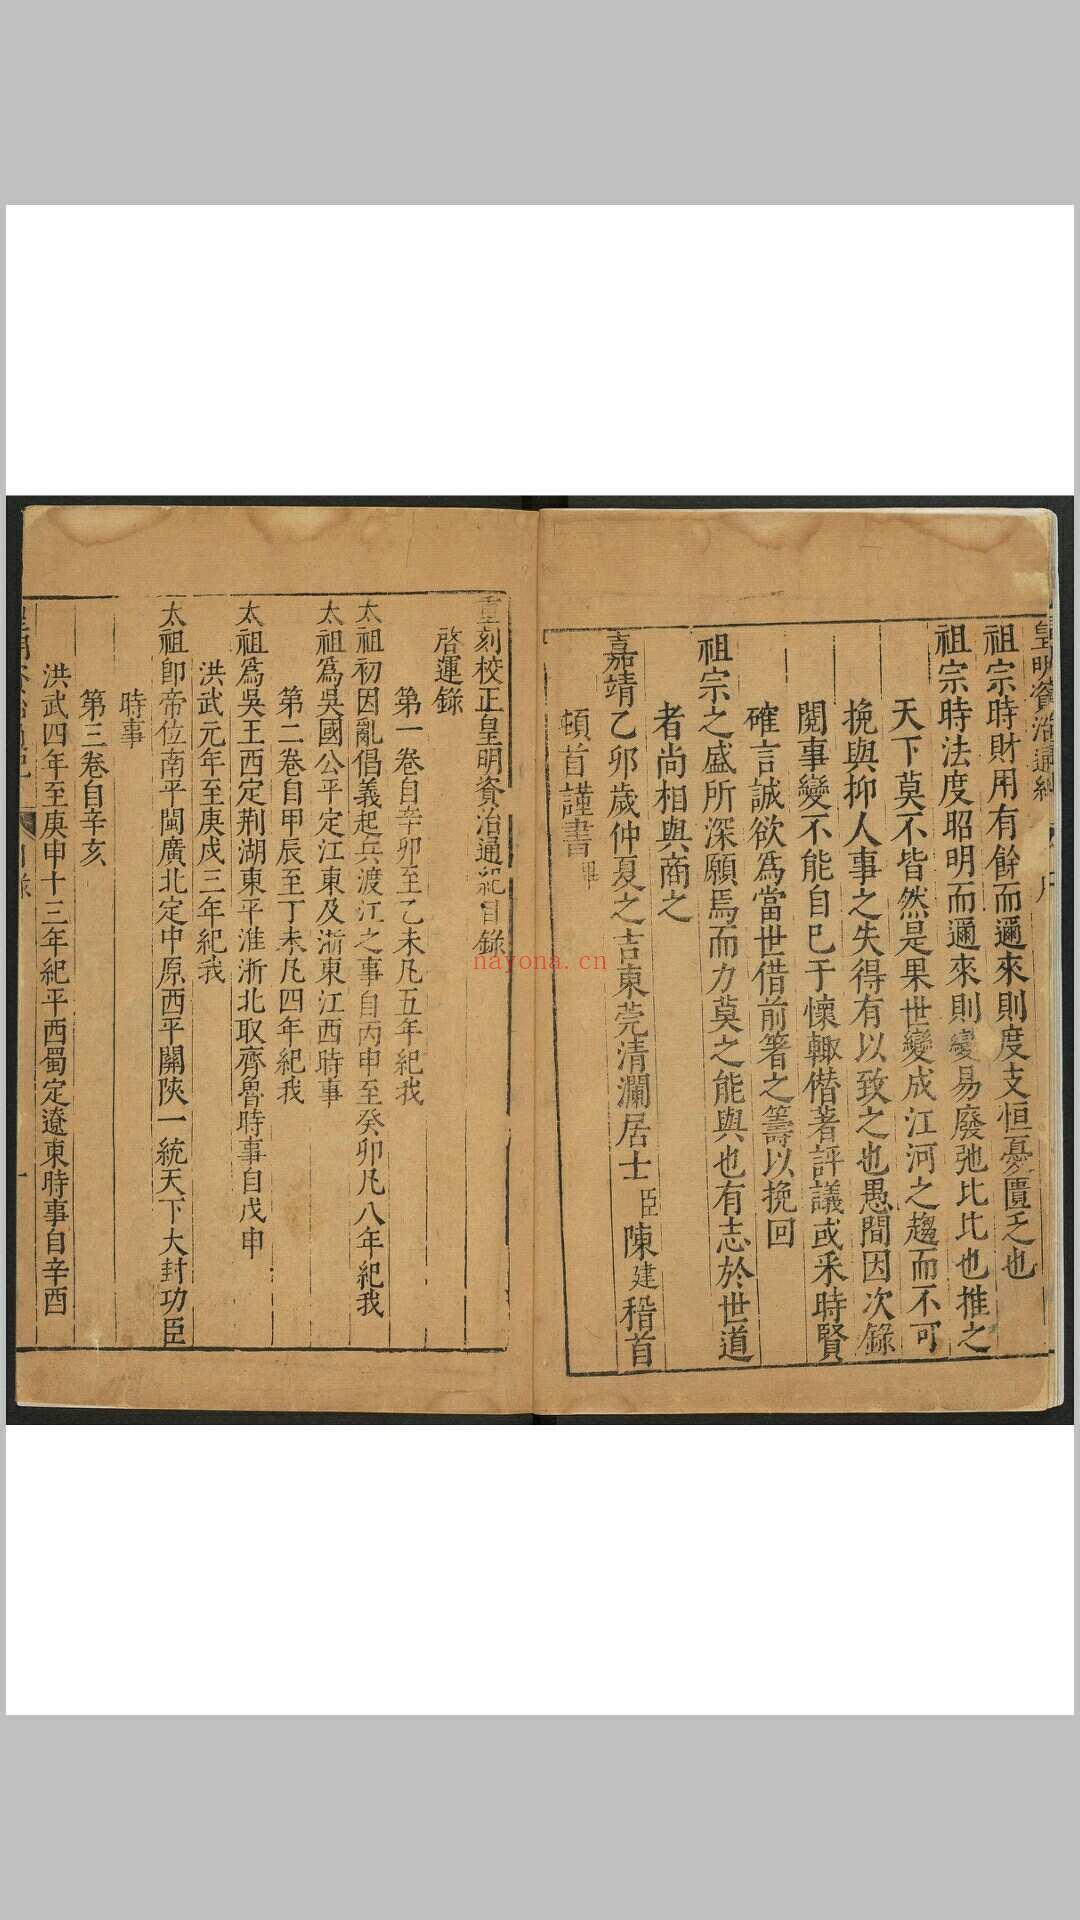 皇明資治通紀
祖宗時財用有餘而邇來則度支恒憂匱乏也
祖宗時法度昭明而邇來則變易廢弛比比也推之
天下莫不皆然是果世變成江河之趨而不可
挽與抑人事之失得有以致之也愚間因次錄
閱事變不能自已于懷輙僭著評議或釆時賢
確言誠欲爲當世借前箸之籌以挽回
祖宗之盛所深願焉而力莫之能與也有志於世道
者尚相與商之
嘉靖乙卯歲仲夏之吉東莞清瀾居士臣陳建稽首
頓首謹書
重刻校正皇明資治通紀目錄
啓運錄
第一卷自辛卯至乙未凡五年紀我
太祖初因亂倡義起兵渡江之事自丙申至癸卯凡八年紀我
太祖爲吳國公平定江東及浙東江西時事
第二卷自甲辰至丁未凡四年紀我
太祖爲吳王西定荆湖東平淮浙北取齊魯時事自戊申
洪武元年至庚戌三年紀我
太祖卽帝位南平閩廣北定中原西平關陜一統天下大封功臣
時事
第三卷自辛亥
洪武四年至庚申十三年紀平西蜀定遼東時事自辛酉
nayona.cn